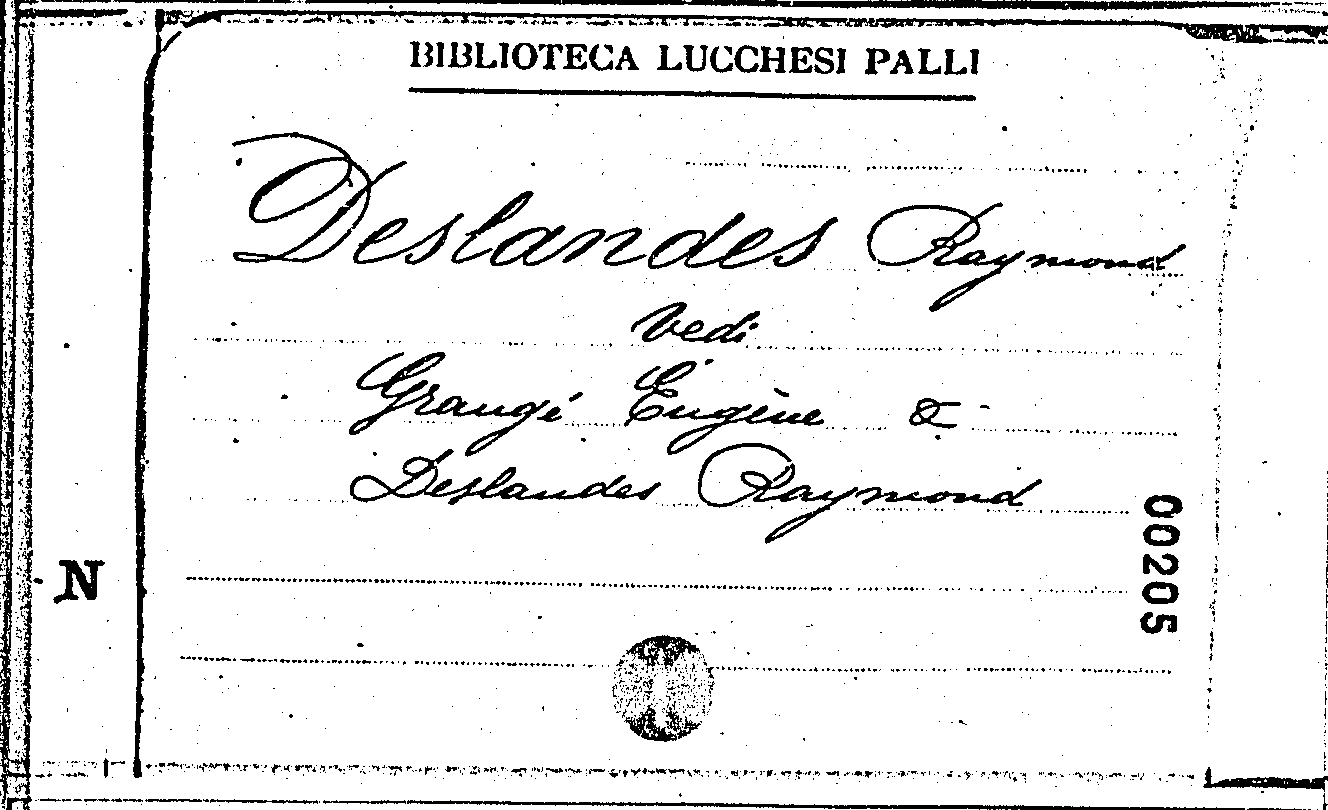 BIBLIOTECA LUCCHESI PALLI
Deslandes Raymond
vedi
Grangé Eugène &
Deslandes Raymond
00205
N